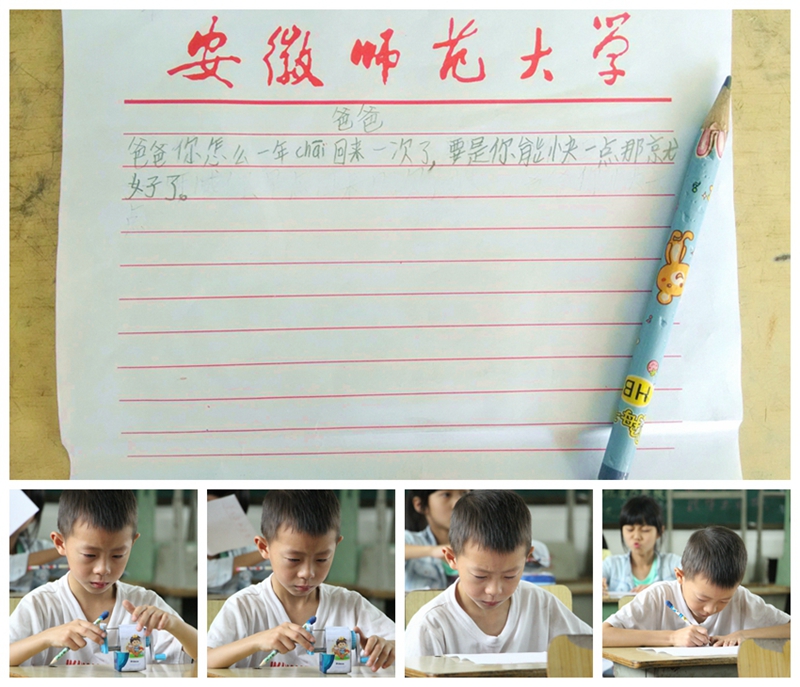 安徽师范大学
爸爸
爸爸你怎么一年chāi回来一次了,要是你能快一点那就
好了。
HB